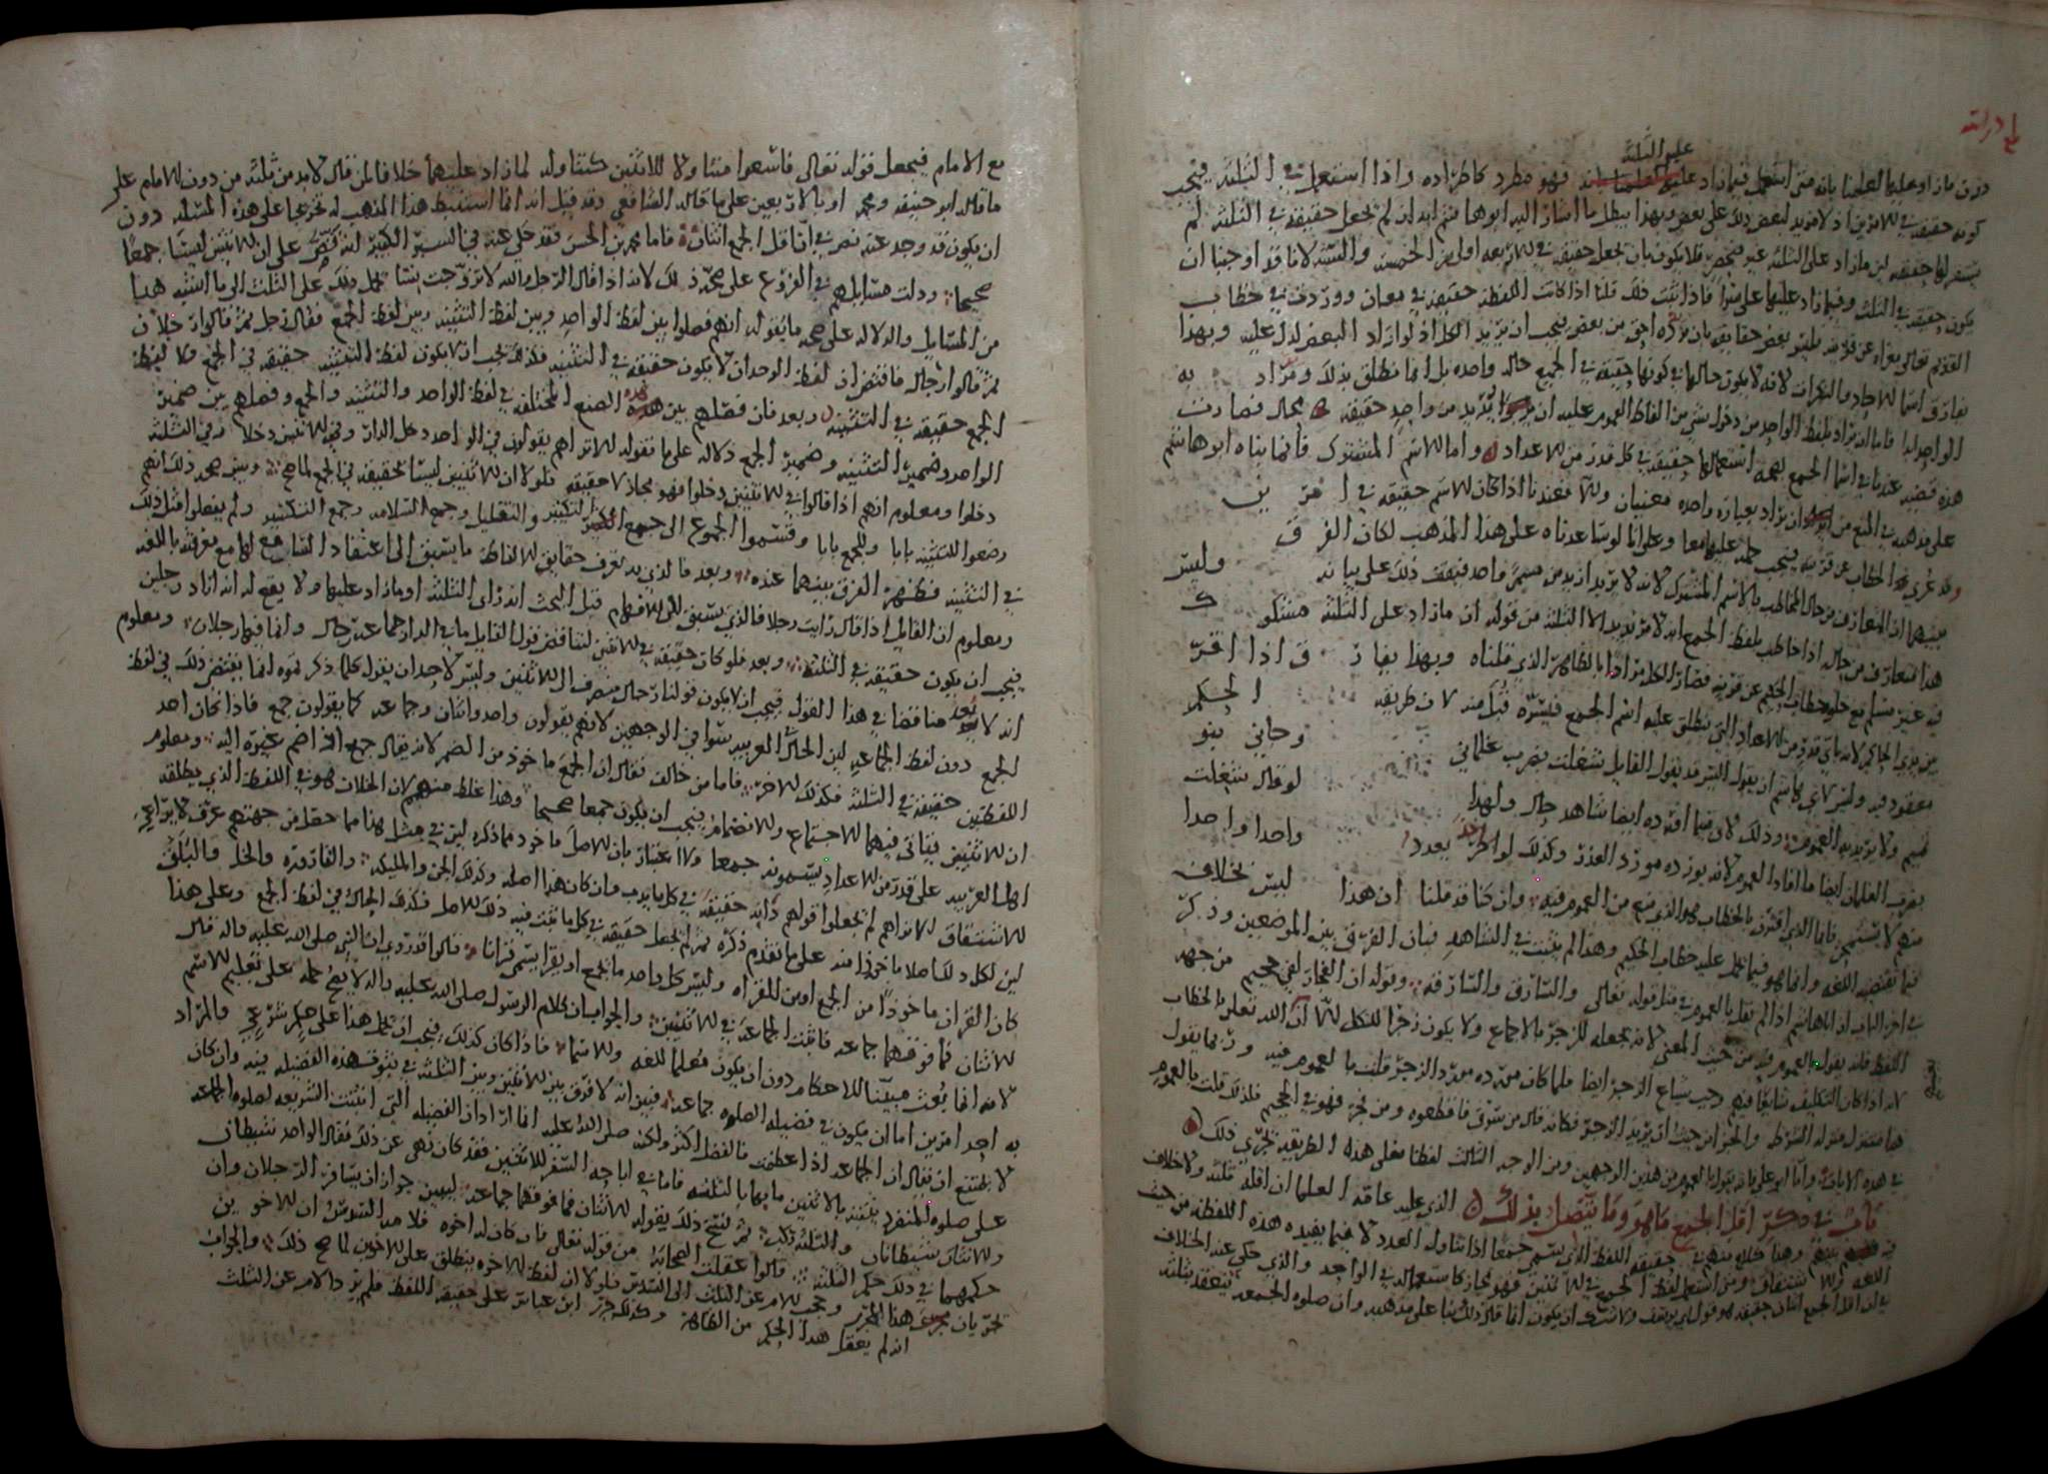 على الثلثة
دون ما زاد عليها لعلمنا بانه متى استعمل فيما زاد عليه فهو مطرد كاطراده واذا استعمل في الثلثة فيجب
كونه حقيقة في الامرين اذ لا مزيد لبعض ذلك على بعض وبهذا يبطل ما اشار اليه ابو هاشم انه لم يجعل حقيقة في الثلثة لم
يستقر لها حقيقة لان ما زاد على الثلثة غير منحصر فلا يكون بان يجعل حقيقة في الاربعة اولى من الخمسة والستة لانا قد اوجبنا ان
يكون حقيقة في الثلث وفيما زاد عليها على سواء فاذا ثبت ذلك قلنا اذا كانت اللفظة حقيقة في معان ووردت في خطاب
القديم تعالى معراه عن قرينة فليس بعض حقايقه بان يريده احق من بعض فيجب ان يريد الكل اذ لو اراد البعض لدل عليه وبهذا
يفارق اسما الاحاد والنكرات لانه لا يكون حالها في كونها حقيقة في الجميع حالة واحدة بل انما تطلق بذلك ويراد به
الواحد
هذه قضيته عندنا في اسما الجمع لصحة استعمالها حقيقة في كل قدر من الاعداد واما الاسم المشترك فانما بناه ابو هاشم
على مذهبه في المنع من ان يراد بعبارة واحدة معنيان والا فعندنا اذا كان الاسم حقيقة في امرين
وقد عري الخطاب عن قرينة فيجب حمله عليهما معا وعلى انا لو ساعدناه على هذا المذهب لكان الفرق
بينهما ان المتعارف من حال المخاطب بالاسم المشترك لانه لا يريد ازيد من مسمى واحد فيقف ذلك على بيانه وليس
هذا المتعارف من حاله اذا خاطب بلفظ الجمع انه لا يريد الا الثلثة من قوله ان ما زاد على الثلثة مشكوك
فيه غير مسلم مع خلو خطاب الحكيم عن قرينة فصار الكل مرادا بالظاهر الذي قلناه وبهذا يفارق اذا اقر
بين يدي الحاكم لانه باي قدر من الاعداد التي تطلق عليه اسم الجمع فسره قبل منه لان طريقه الحكم
معقود فيه وليس لابي هاشم ان يقول اليس قد يقول القايل شغلت بضرب غلماني وجاني بنو
تميم ولا يريد به العموم وذلك لان فيما اورده ايضا شاهد حال ولهذا لو قال شغلت
بضرب الغلمان ايضا ما افاد العموم لانه يورده مورد العذر وكذلك لو اخذ يعدد واحدا واحدا
منهم لاستهجن فاما الذي اقترن بالخطاب فهو الذي منع من العموم فيه وان كنا قد قلنا ان هذا ليس بخلاف
فيما تقتضيه اللغة وانما هو فيما يحمل عليه خطاب الحكيم وهذا لم يثبت في الشاهد فبان الفرق بين الموضعين وذكر
في اخر الباب ان ابا هاشم اذا لم نقل بالعموم في مثل قوله تعالى والسارق والسارقة وقوله ان الفجار لفي جحيم من جهة
اللفظ فانه يقول بالعموم فيه من حيث المعنى لانه يجعله للزجر بالاجماع ولا يكون زجرا للكل الا ان الله تعالى بالخطاب
لانه اذا كان التكليف شايعا فيهم وجب شياع الزجر ايضا فلما كان مورده مورد الزجر قلت بالعموم فيه وربما يقول
هنا منزل منزلة الشرط والجزا من حيث ان يريد الزجر فكانه قال من سرق فاقطعوه ومن فجر فهو في الجحيم فلذلك قلت بالعموم
في هذه الايات واما ابو علي فانه يقول بالعموم من هذين الوجهين ومن الوجه الثالث لفظا فعلى هذه الطريقة يجري ذلك
باب في ذكر اقل الجمع ما هو وما يتصل بذلك الذي عليه عامة العلما ان اقله ثلثة ولا خلاف
في بينهم وهذا خلاف منهم في حقيقة اللفظ الذي يسمى جمعا اذا تناول العدد لا فيما يفيده هذه اللفظة من حيث
اللغة والاشتقاق ومتى استعمل لفظ الجمع في الاثنين فهو مجاز كاستعماله في الواحد والذي حكي عنه الخلاف
في ان اقل الجمع اثنان حقيقة هو قول ابي يوسف ولا يمتنع ان يكون انما قال ذلك بنا على مذهبه وان صلوة الجمعة تنعقد بثلثة
مع الامام فيجعل قوله تعالى فاسعوا متناولا للاثنين كتناوله لما زاد عليهما خلافا لمن قال لا بد من ثلثة من دون الامام على
ما قاله ابو حنيفة ومحمد او بالاربعين على ما قاله الشافعي وقد قيل انه انما استنبط هذا المذهب له تخريجا على هذه المسئلة دون
ان يكون قد وجد عنه نص في ان اقل الجمع اثنان فاما محمد بن الحسن فقد حكي عنه في السير الكبير انه نص على ان الاثنين ليسا جمعا
صحيحا ودلت مسايلهم في الفروع على صحة ذلك لانه اذا قال الرجل والله لا تزوجت نسا حمل ذلك على الثلث الى ما اشبه هذا
من المسايل والدلالة على صحة ما يقوله انهم فصلوا بين لفظة الواحد وبين لفظة التثنية وبين لفظة الجمع فقالوا رجل ثم قالوا رجلان
ثم قالوا رجال فاقتضى ان لفظة الوحدان لا يكون حقيقة في التثنية فكذلك يجب ان لا يكون لفظة التثنية حقيقة في الجمع ولا لفظة
الجمع حقيقة في التثنية وبعد فان فصلهم بين هذه الصيغ المختلفة في لفظ الواحد والتثنية والجمع وفصلهم بين ضمير
الواحد وضمير التثنية وضمير الجمع دلالة على ما نقوله الا تراهم يقولون في الواحد دخل الدار وفي الاثنين دخلا وفي الثلثة
دخلوا ومعلوم انهم اذا قالوا في الاثنين دخلوا فهو مجاز لا حقيقة فلولا ان الاثنين ليسا بحقيقة في الجمع لما صح ويبين صحة ذلك انهم
وضعوا للتثنية بابا وللجمع بابا وقسموا الجموع الى جمع التكثير والتقليل وجمع السلامة وجمع التكسير ولم يفعلوا مثل ذلك
في التثنية فظهر الفرق بينهما عنده وبعد فالذي به تعرف حقايق الالفاظ ما يسبق الى اعتقاد السامع لها مع معرفته باللغة
ومعلوم ان القايل اذا قال رايت رجلا فالذي يسبق الى الافهام قبل البحث انه راى الثلثة او ما زاد عليها ولا يقع له انه اراد رجلين
فيجب ان يكون حقيقة في الثلثة وبعد فلو كان حقيقة في الاثنين لتناقض قول القايل ما في الدار جماعة رجال وانما فيها رجلان ومعلوم
انه لا يعد مناقضا في هذا القول فيجب ان لا يكون قولنا رجال منصرف الى الاثنين وليس لاحد ان يقول كلما ذكرتموه انما يقتضي ذلك في لفظة
الجمع دون لفظ الجماعة لان الحال العربية سوا في الوجهين لانهم يقولون واحد واثنان وجماعة كما يقولون جمع فاذا كان احد
اللفظين حقيقة في الثلثة فكذلك الاخر فاما من خالف فقال ان الجمع ماخوذ من الضم لانه يقال جمع اذا ضم غيره اليه ومعلوم
ان الاثنين يتاتى فيهما الاجتماع والانضمام فيجب ان يكون جمعا صحيحا وهذا غلط منهم لان الخلاف هو في اللفظ الذي يطلقه
اهل العربية على قدر من الاعداد يسمونه جمعا ولا اعتبار بان الاصل ماخوذ مما ذكره لان في مثل هذا مما حصل من جهتهم عرف لا يراعى
الاشتقاق الا تراهم لم يجعلوا قولهم دابة حقيقة في كل ما يدب وان كان هذا اصله وكذلك الجن والمليكة والقارورة والخل والبلق
لان لكل ذلك اصلا ماخوذا منه على ما تقدم ذكره ثم لم يجعل حقيقة في كل ما يثبت فيه ذلك الاصل فكذلك الحال في لفظ الجمع وعلى هذا
كان القران ماخوذا من الجمع او من القراه وليس كل واحد ما يجمع او يقرا يسمى قرانا قالوا قد روي ان النبي صلى الله عليه واله قال
الاثنان فما فوقهما جماعة فاثبت الجماعة في الاثنين والجواب ان كلام الرسول صلى الله عليه واله لا يصح حمله على تعليم الاسم
لانه انما بعث مبينا للاحكام دون ان يكون معلما للغة والاسما فاذا كان كذلك فيجب ان يحمل هذا على حكم شرعي والمراد
به احد امرين اما ان يكون في فضيلة الصلوة جماعة فبين انه لا فرق بين الاثنين وبين الثلثة في ثبوت هذه الفضيلة فيه وان كان
لا يمتنع ان يقال ان الجماعة اذا عظمت فالفضل اكثر ولكنه صلى الله عليه انما اراد ان الفضيلة التي اثبتت الشريعة لصلوة الجماعة
على صلوة المنفرد يثبت بالاثنين ما يثبت بالثلثة فاما في اباحة السفر للاثنين فقد كان نهى عن ذلك فقال الواحد شيطان
والاثنان شيطانان والثلثة ركب ثم نسخ ذلك بقوله الاثنان فما فوقهما جماعة ليبين جواز ان يسافر الرجلان وان
حكمهما في ذلك حكم الثلثة قالوا عقلت الصحابة من قوله تعالى فان كان له اخوة فلامه السدس ان الاخوين
يحجبان الام عن الثلث الى السدس فلولا ان لفظة الاخوة ينطلق على الاخوين لما صح ذلك والجواب
انه لم يعقل هذا الحكم من الظاهر وكذلك ابن عباس على حقيقة اللفظ فلم يرد الام عن الثلث